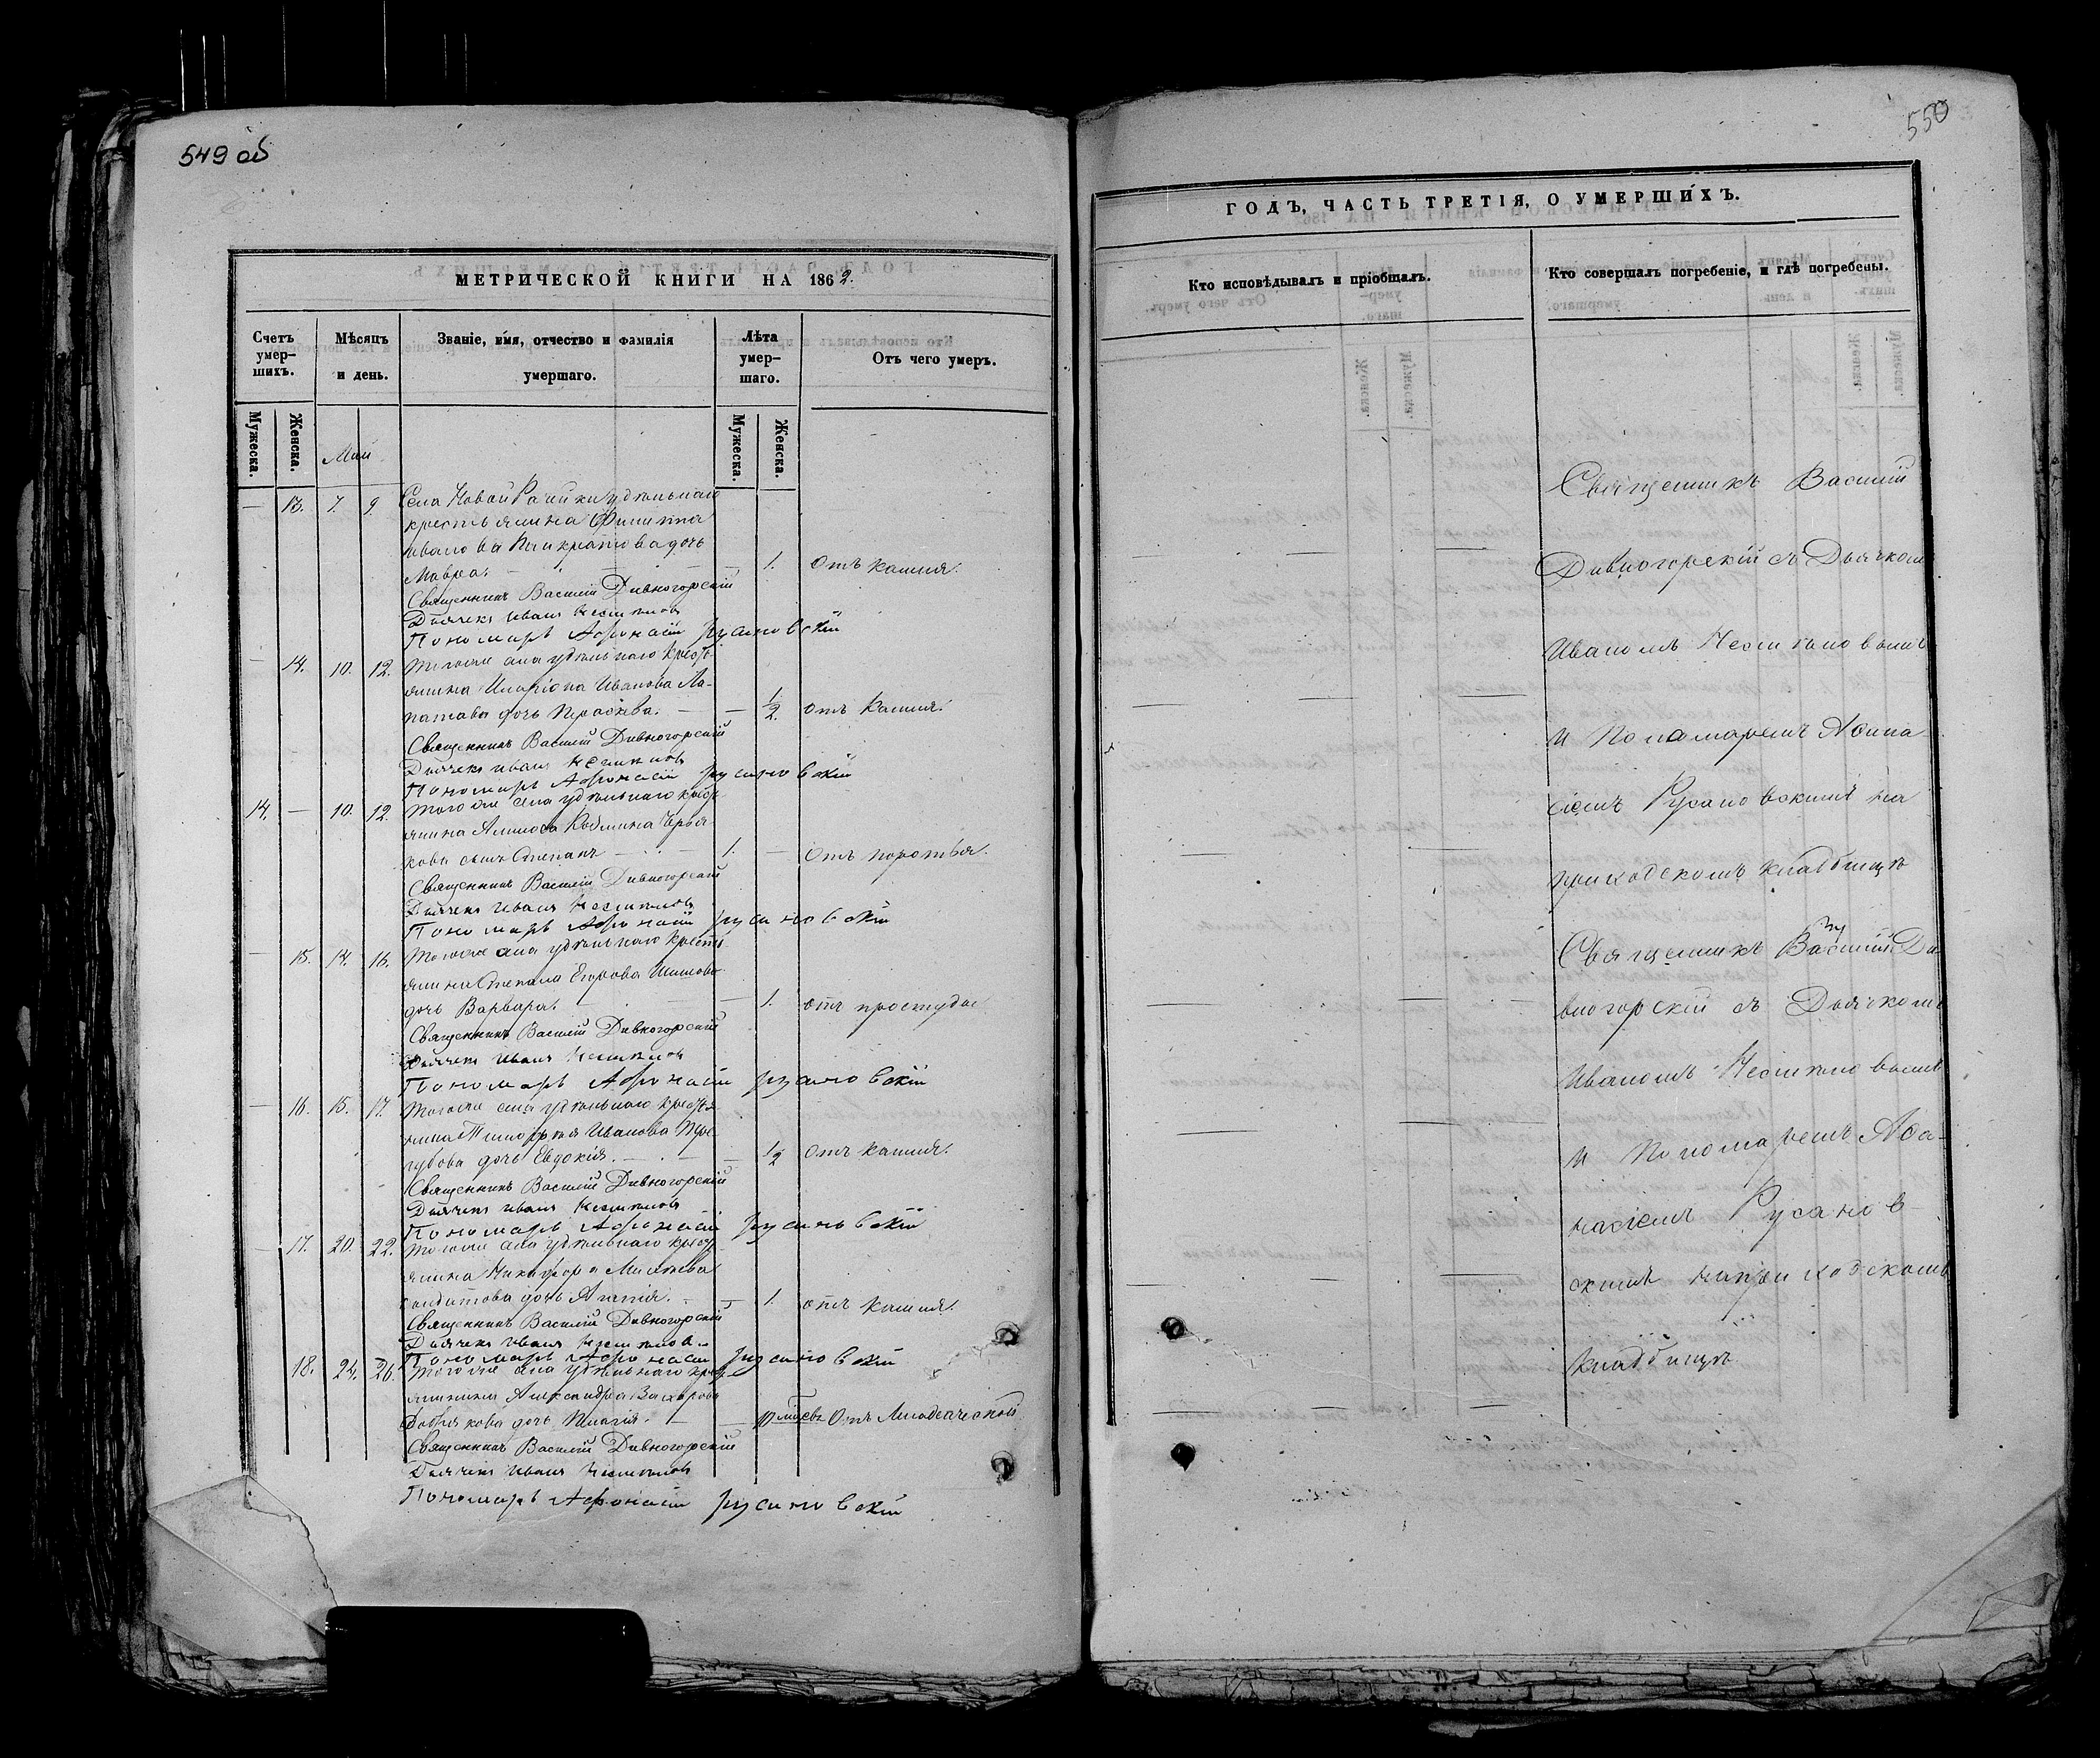 549 об
МЕТРИЧЕСКОЙ КНИГИ НА 1862.
Счетъ умер-шихъ.
Мѣсяцъ и день.
Званіе, имя, отчество и фамилія умершаго.
Лѣта умер-шаго.
Отъ чего умеръ.
Мужеска.
Женска.
Мужеска.
Женска.
Май
— 13. 7. 9. Села Новой Рачейки удѣльнаго
крестьянина Филиппа
Иванова Панкратова дочь
Мавра. — 1. Отъ кашля.
Священникъ Василій Дивногорскій
Дьячекъ Иванъ
Пономарь Афонасій Русановскій
— 14. 10. 12. Того же села удѣльнаго кресть-
янина Иларіона Иванова Ла-
патова дочь Праскева. — — 1/2. Отъ кашля.
Священникъ Василій Дивногорскій
Дьячекъ Иванъ
Пономарь Афонасій Русановскій
14. — 10. 12. Того же села удѣльнаго кресть
янина
кова сынъ Степанъ — 1. — Отъ
Священникъ Василій Дивногорскій
Дьячекъ Иванъ
Пономарь Афонасій Русановскій
— 15. 14. 16. Того же села удѣльнаго кресть
янина Степана Егорова
дочь Варвара. — — 1. отъ простуды
Священникъ Василій Дивногорскій
Дьячекъ Иванъ
Пономарь Афонасій Русановскій
— 16. 15. 17. Того же села удѣльнаго крестья
нина Тимофея Иванова
дочь Евдокія. — — 1/2 Отъ кашля.
Священникъ Василій Дивногорскій
Дьячекъ Иванъ
Пономарь Афонасій Русановскій
— 17. 20. 22. Того же села удѣльнаго кресть
янина Никифора
дочь — — 1. отъ кашля.
Священникъ Василій Дивногорскій
Дьячекъ Иванъ
Пономарь Афонасій Русановскій
18. 24. 26. Того же села удѣльнаго кресть
янина Александра Захарова
дочь — — Отъ Младенческой
Священникъ Василій Дивногорскій
Дьячекъ Иванъ
Пономарь Афонасій Русановскій
550
ГОДЪ, ЧАСТЬ ТРЕТІЯ, О УМЕРШИХЪ.
Кто исповѣдывалъ и пріобщалъ.
Кто совершалъ погребеніе, и гдѣ погребены.
Священникъ Василій
Дивногорскій съ Дьячкомъ
Иваномъ
и Пономаремъ Аѳана
сіемъ Русановскимъ на
приходскомъ кладбищѣ
Священникъ Василій Ди-
вногорскій съ Дьячкомъ
Иваномъ
и Пономаремъ Аѳа-
насіемъ Русанов-
скимъ на приходскомъ
кладбищѣ